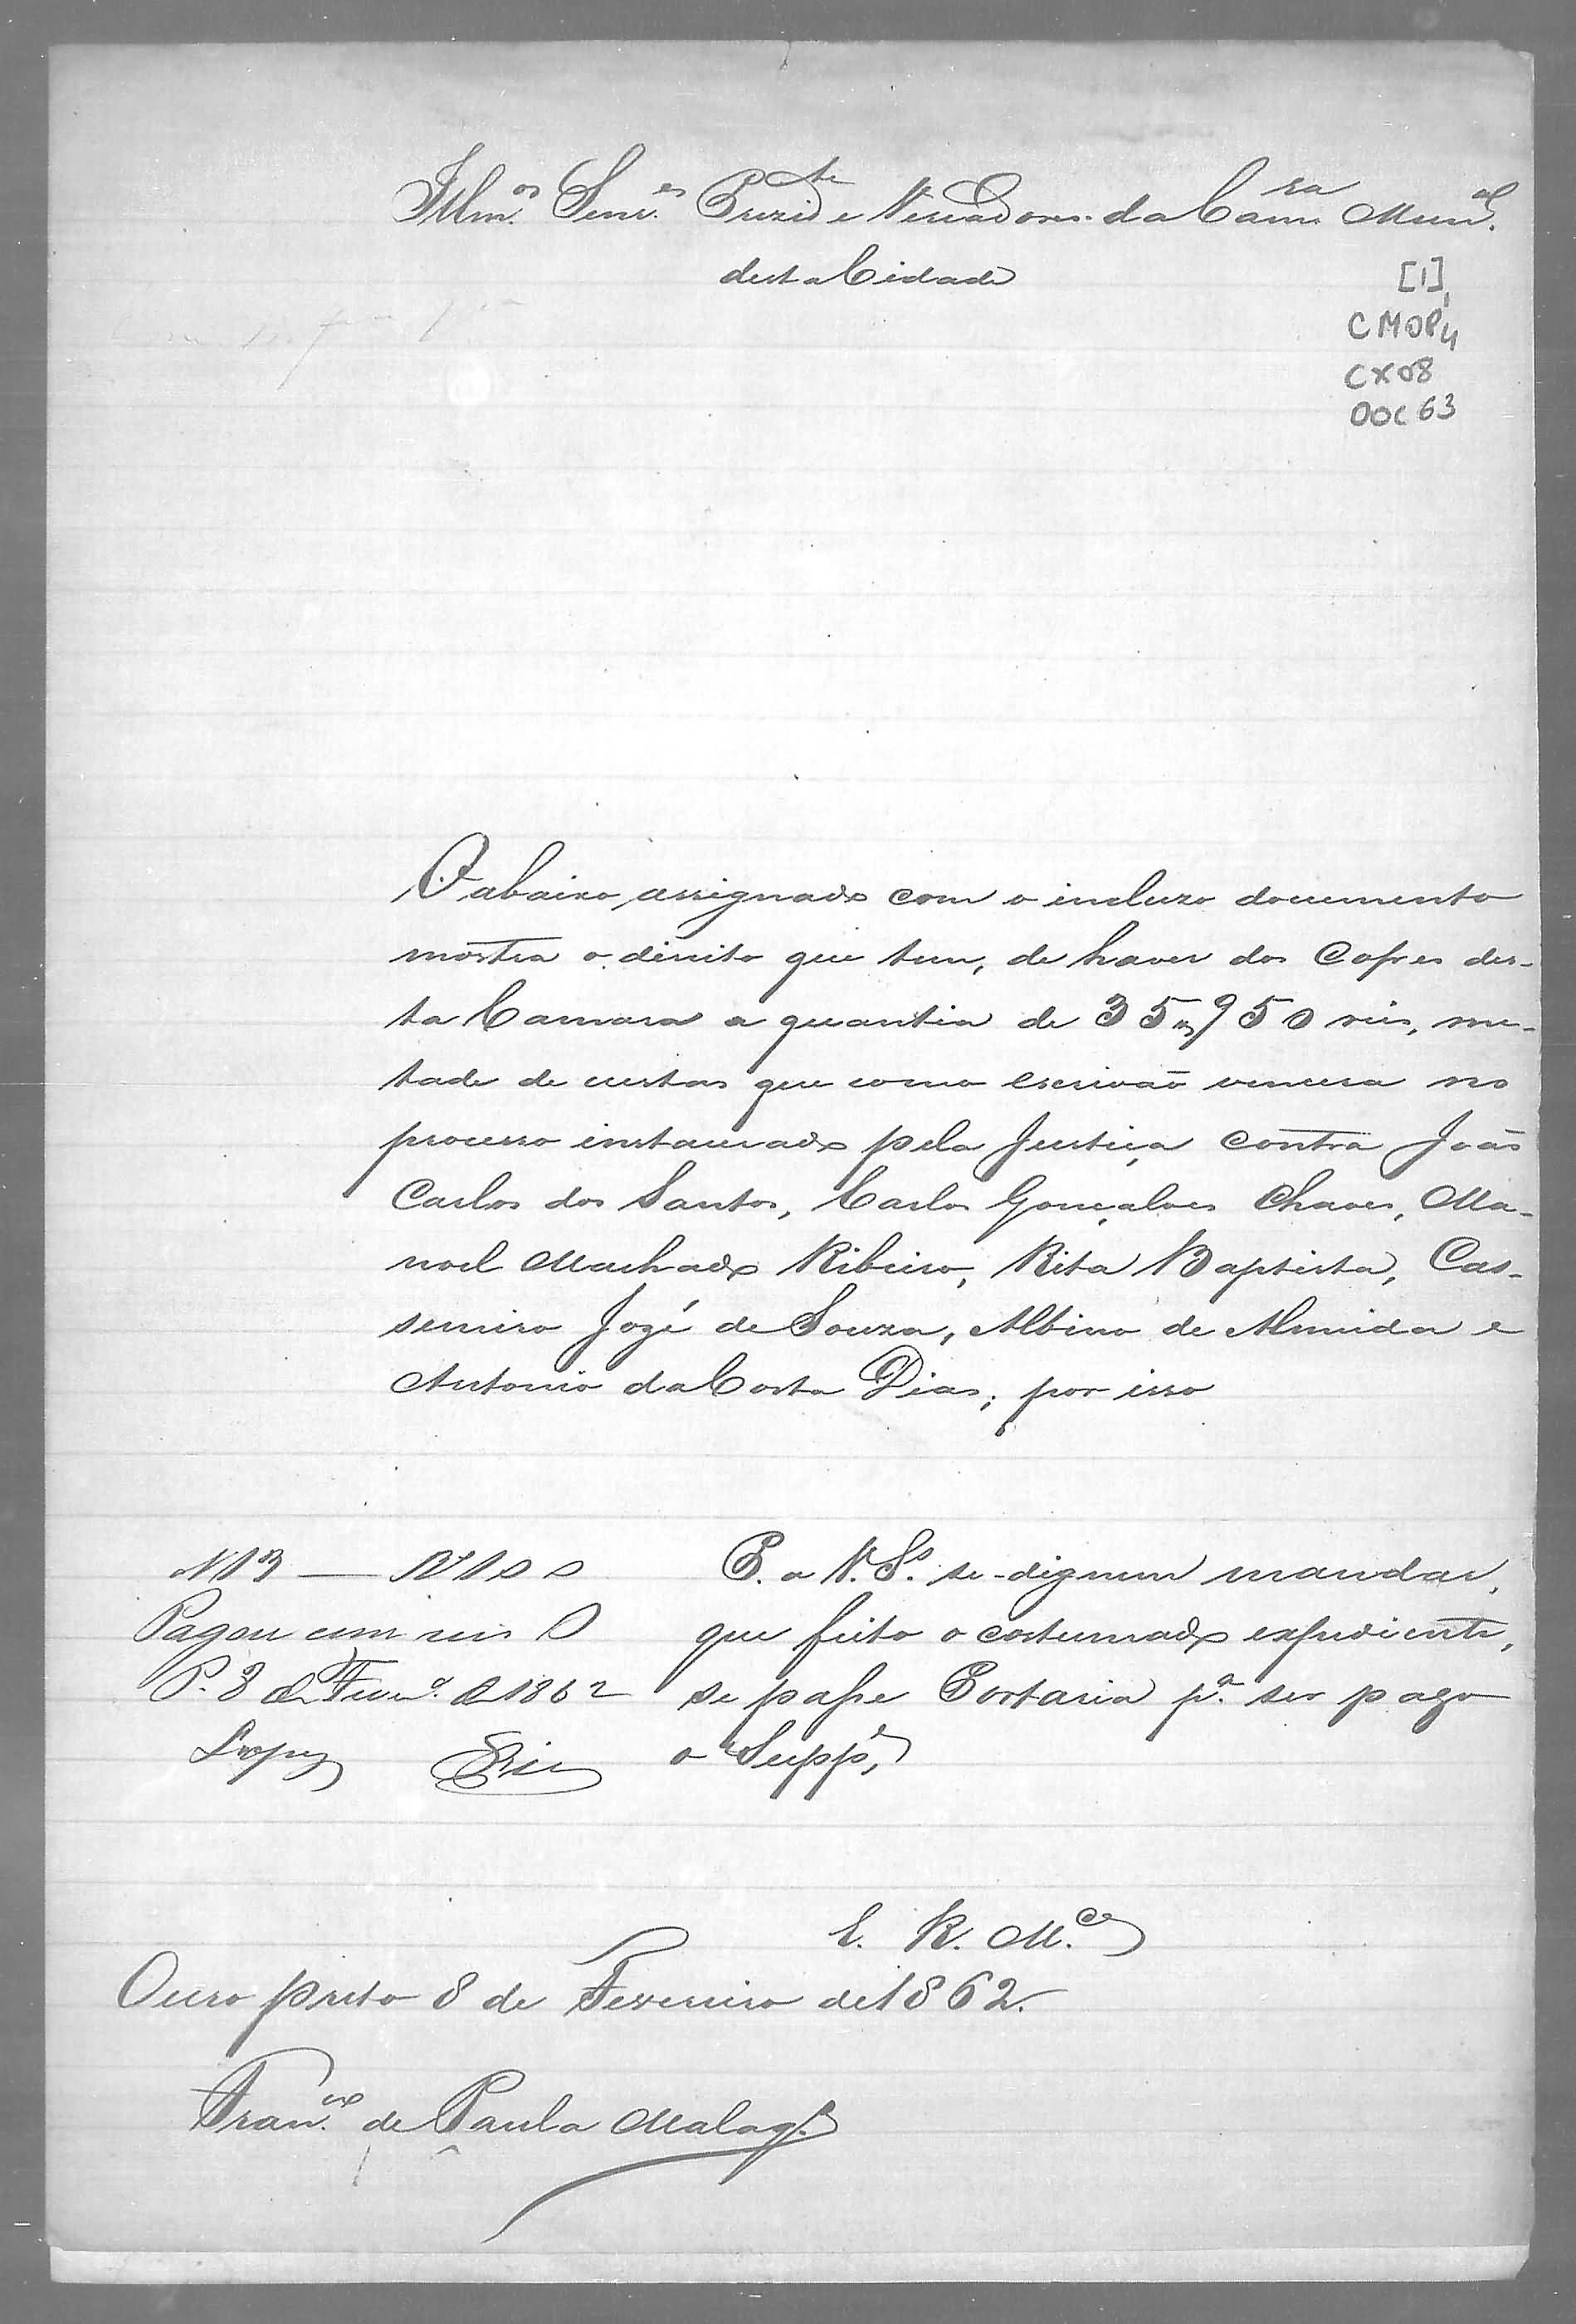 Illm.os Senr.es Prezid.te e Vereadores da Camr.a Mun.al
desta Cidade
[1]
CMOP4
CX08
DOC 63
O abaixo assignado com o incluzo documento
mostra o direito que tem, de haver dos Cofres des-
ta Camara a quantia de 35$950 reis, me-
tade de custas que como escrivaõ vencera no
processo instaurado pela Justiça contra Joaõ
Carlos dos Santos, Carlos Gonçalves Chaves, Ma-
noel Machado Ribeiro, Rita Baptista, Cas-
semiro Jozé de Souza, Albino de Almeida e
Antonio da Costa Dias; por isso
P. a V. S.s se-dignem mandar,
que feito o costumado expediente,
se passe Portaria p.a ser pago
o Supp.e
N 13 — 100
Pagou cem reis
P. 8 de Fever.o de 1862
E. R. M.ce
Ouro preto 8 de Fevereiro de 1862.
Fran.co de Paula Malag.